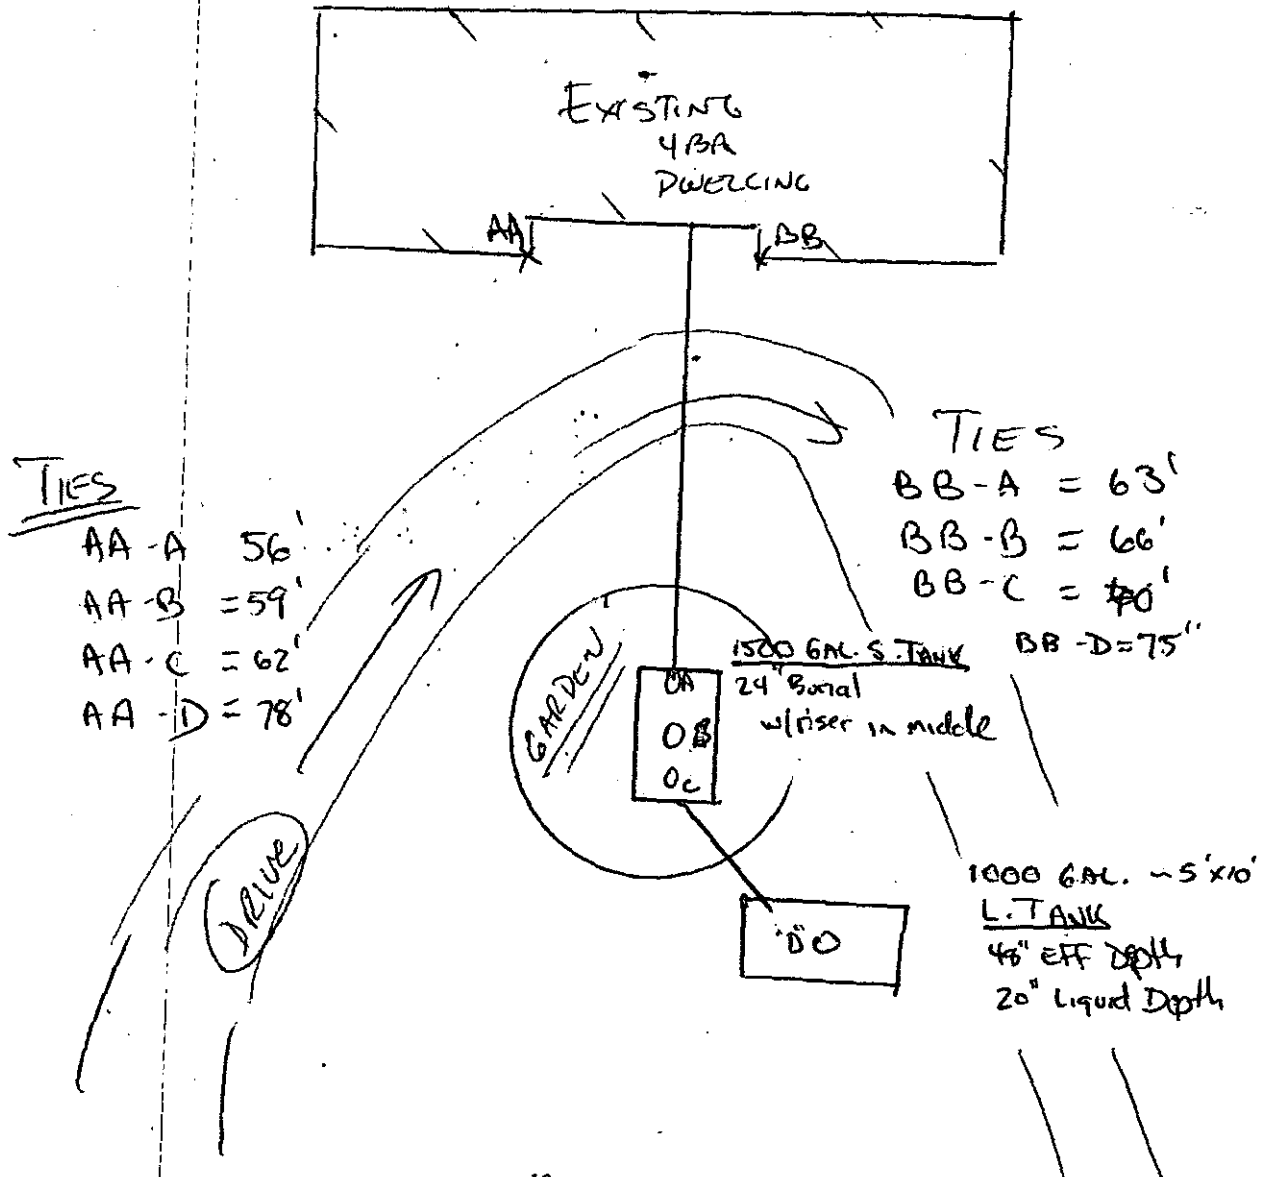 EXISTING
4 BR
DWELLING
AA
BB
TIES
AA-A 56'
AA-B = 59'
AA-C = 62'
AA-D = 78'
TIES
BB-A = 63'
BB-B = 66'
BB-C = 70'
BB-D = 75"
GARDEN
1500 GAL. S. TANK
24" Burial
w/riser in middle
A
B
C
DRIVE
"D"
1000 GAL. ~5'x10'
L. TANK
48" EFF Depth
20" Liquid Depth